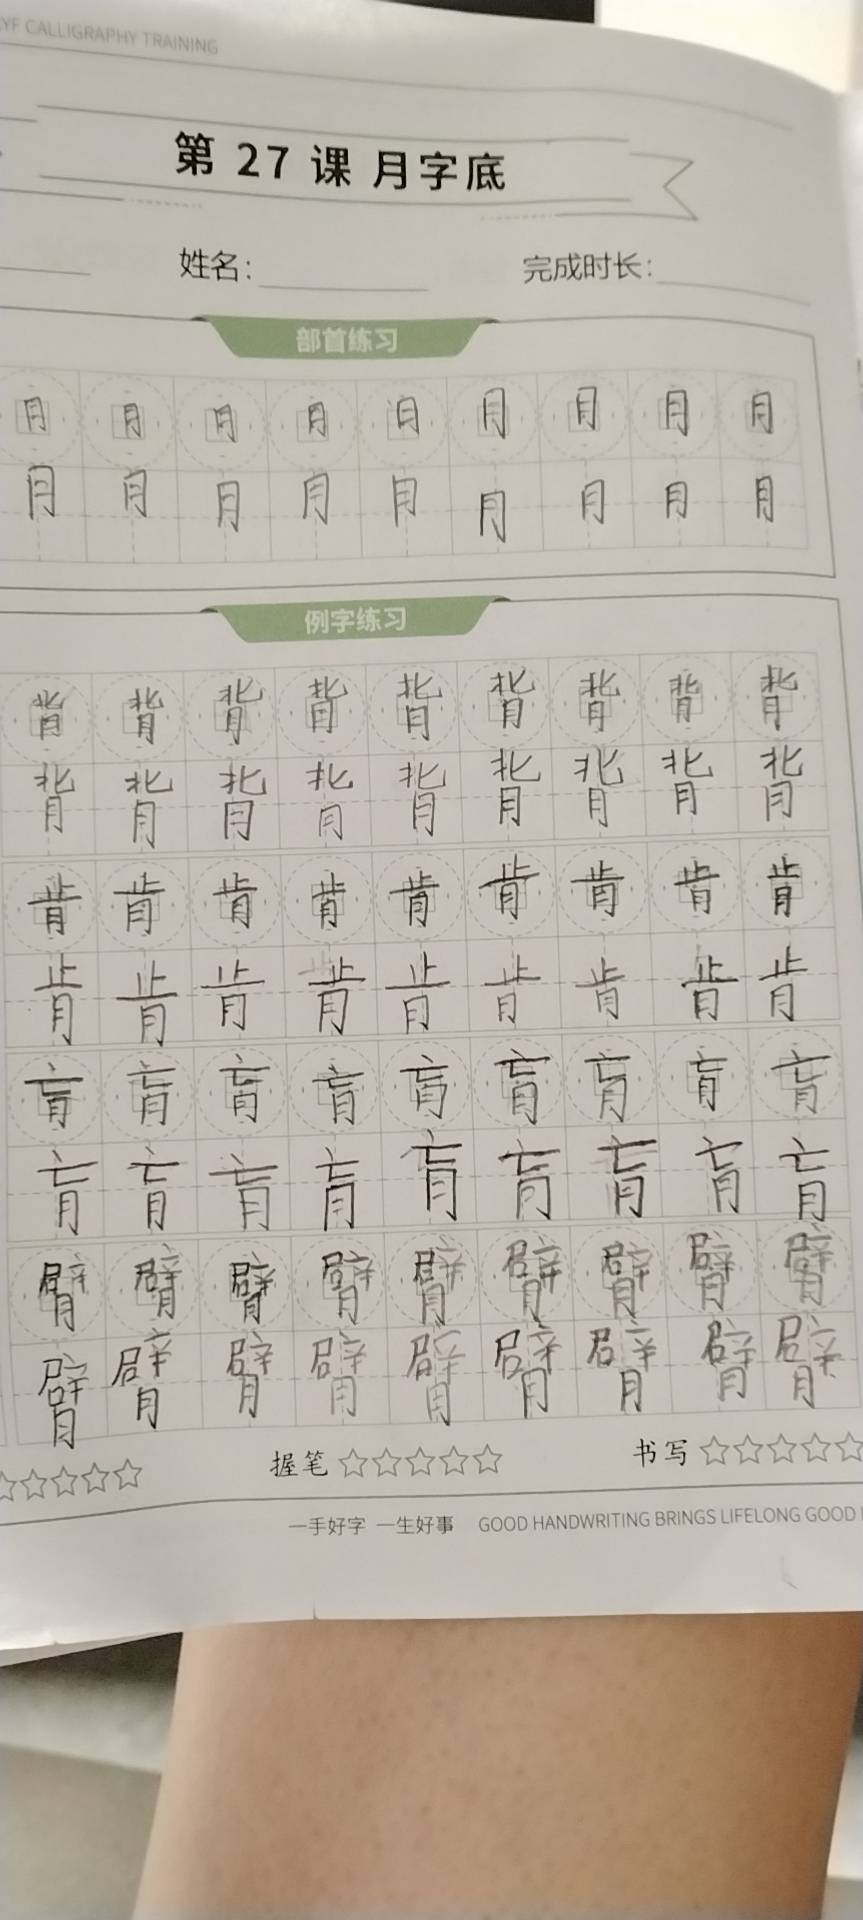 YF CALLIGRAPHY TRAINING
第 27 课 月字底
姓名: 完成时长:
部首练习
月 月 月 月 月 月 月 月 月
月 月 月 月 月 月 月 月 月
例字练习
背 背 背 背 背 背 背 背 背
背 背 背 背 背 背 背 背 背
肯 肯 肯 肯 肯 肯 肯 肯 肯
肯 肯 肯 肯 肯 肯 肯 肯 肯
肓 肓 肓 肓 肓 肓 肓 肓 肓
肓 肓 肓 肓 肓 肓 肓 肓 肓
臂 臂 臂 臂 臂 臂 臂 臂 臂
臂 臂 臂 臂 臂 臂 臂 臂 臂
握笔 ☆☆☆☆☆ 书写 ☆☆☆☆☆
一手好字 一生好事 GOOD HANDWRITING BRINGS LIFELONG GOOD